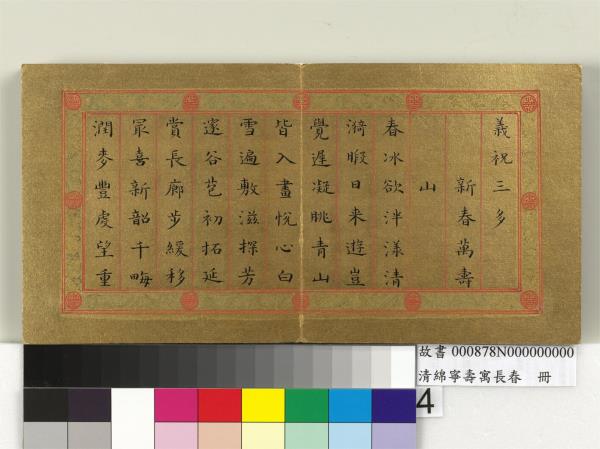 義祝三多
新春萬壽
山
春冰欲泮漾清
漪暇日来遊豈
覺遲凝眺青山
皆入畫悅心白
雪遍敷滋探芳
邃谷苞初拓延
賞長廊步緩移
最喜新韶千畮
潤麥豐虔望重
故書 000878N000000000
清綿寧壽寓長春 冊
4